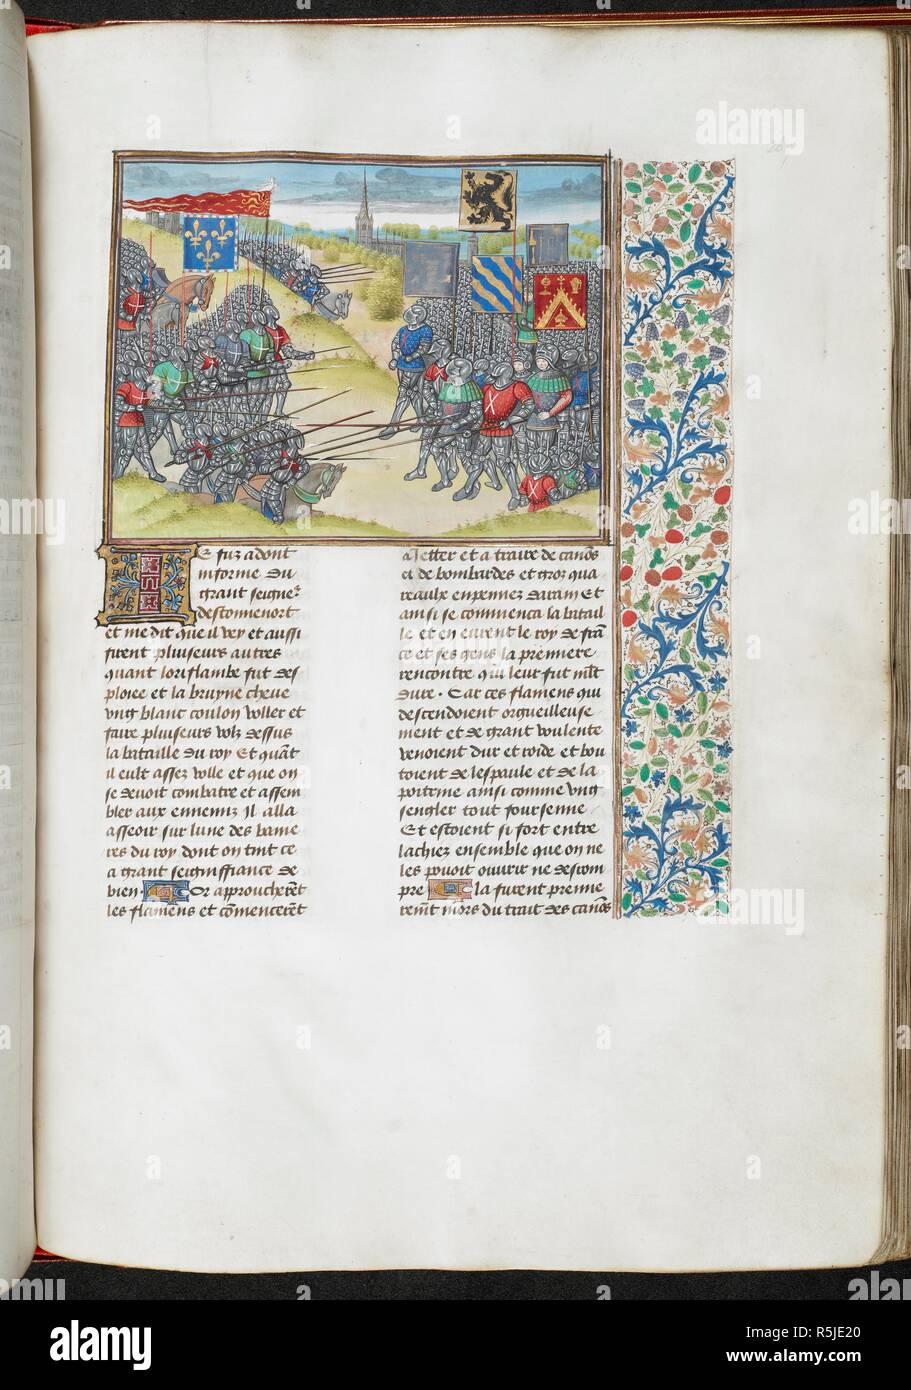 Je fuz adont
informe du
grant seignr
destonnenort
et me dit que il vey et aussi
firent pluiseurs autres
quant loriflambe fut des
ploiee et la bruyne cheue
ung blanc coulon voller et
faire pluiseurs volz dessus
la bataille du roy Et quāt
il eult assez volle et que on
se devoit combatre et assem
bler aux ennemiz Il alla
asseoir sur lune des banie
res du roy dont on tint ce
a grant seigniffiance de
bien. Or approucherēt
les flamens et cōmencerēt
a Jetter et a traire de canōs
et de bombardes et gros qua
reaulx enpennez darain Et
ainsi se commenca la batail
le et en eurent le roy de frā
ce et ses gens la premiere
rencontre qui leur fut mlt
dure. Car ces flamens qui
descendoient orgueilleuse
ment et de grant voulente
venoient dur et roide et bou
toient de lespaule et de la
poitrine ainsi comme ung
sengler tout foursenne
Et estoient si fort entre
lachiez ensemble que on ne
les povoit ouvrir ne descom
pre la furent premie
remt mors du trait des canōs
alamy
alamy
Image ID: R5JE20
www.alamy.com